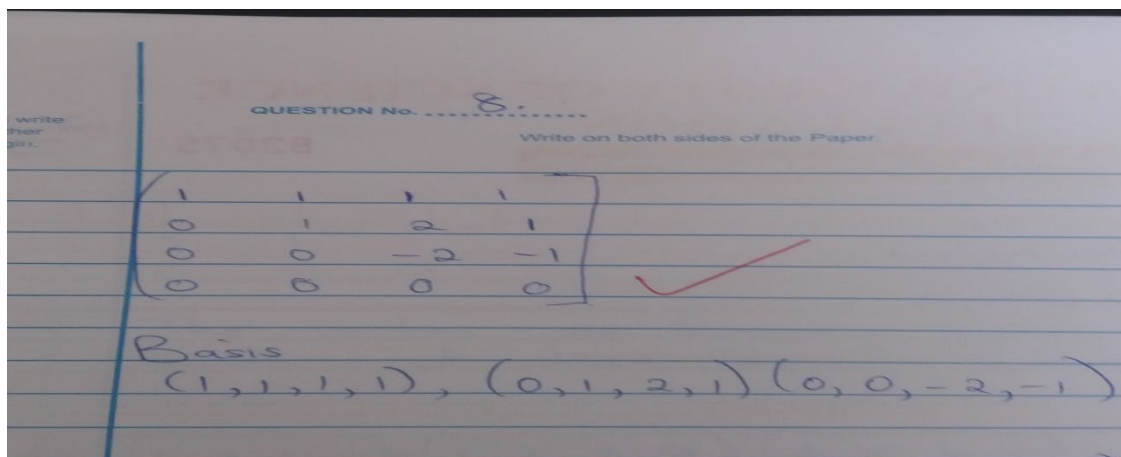 write
QUESTION No. 8.
Write on both sides of the Paper.
1 1 1 1
0 1 2 1
0 0 -2 -1
0 0 0 0
Basis
(1,1,1,1), (0,1,2,1) (0,0,-2,-1)